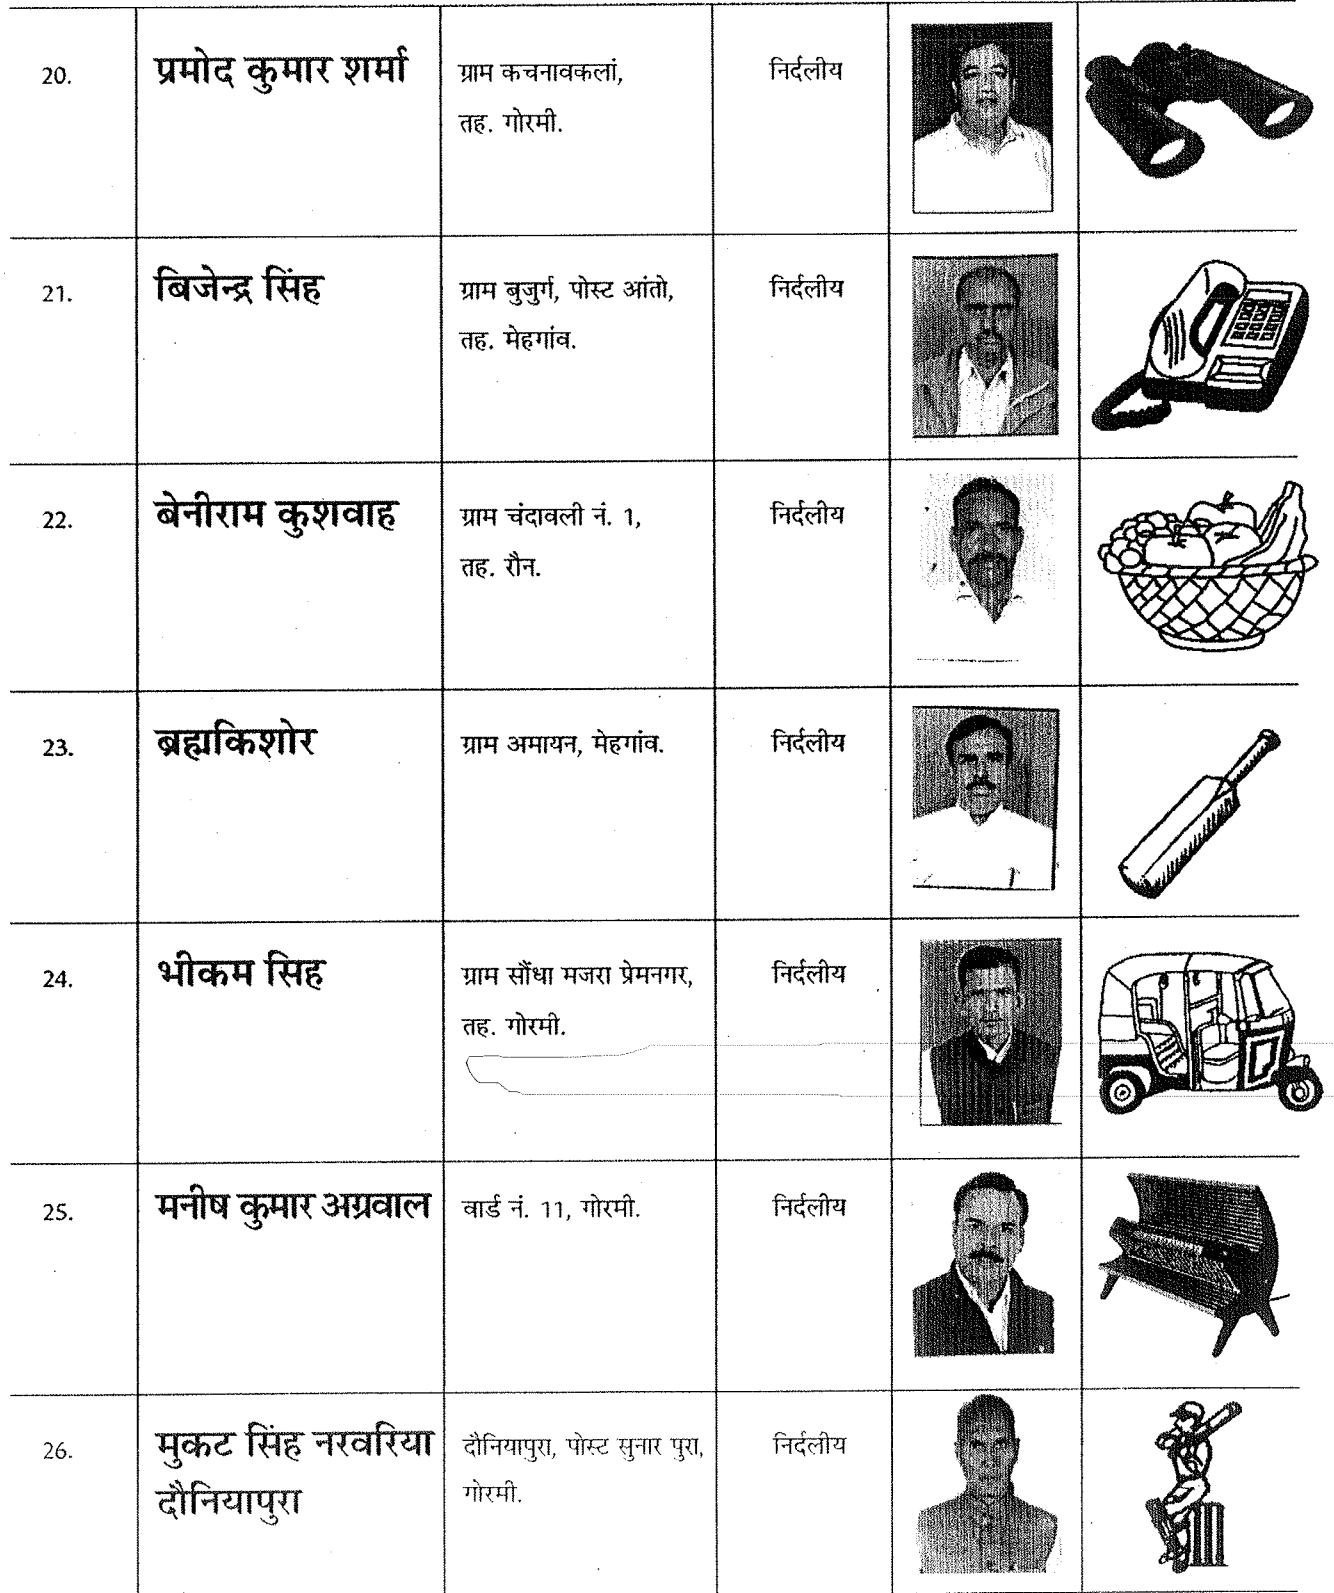 20.
प्रमोद कुमार शर्मा
ग्राम कचनावकलां,
तह. गोरमी.
निर्दलीय
21.
बिजेन्द्र सिंह
ग्राम बुजुर्ग, पोस्ट आंतो,
तह. मेहगांव.
निर्दलीय
22.
बेनीराम कुशवाह
ग्राम चंदावली नं. 1,
तह. रौन.
निर्दलीय
23.
ब्रह्मकिशोर
ग्राम अमायन, मेहगांव.
निर्दलीय
24.
भीकम सिह
ग्राम सौंधा मजरा प्रेमनगर,
तह. गोरमी.
निर्दलीय
25.
मनीष कुमार अग्रवाल
वार्ड नं. 11, गोरमी.
निर्दलीय
26.
मुकट सिंह नरवरिया
दौनियापुरा
दौनियापुरा, पोस्ट सुनार पुरा,
गोरमी.
निर्दलीय